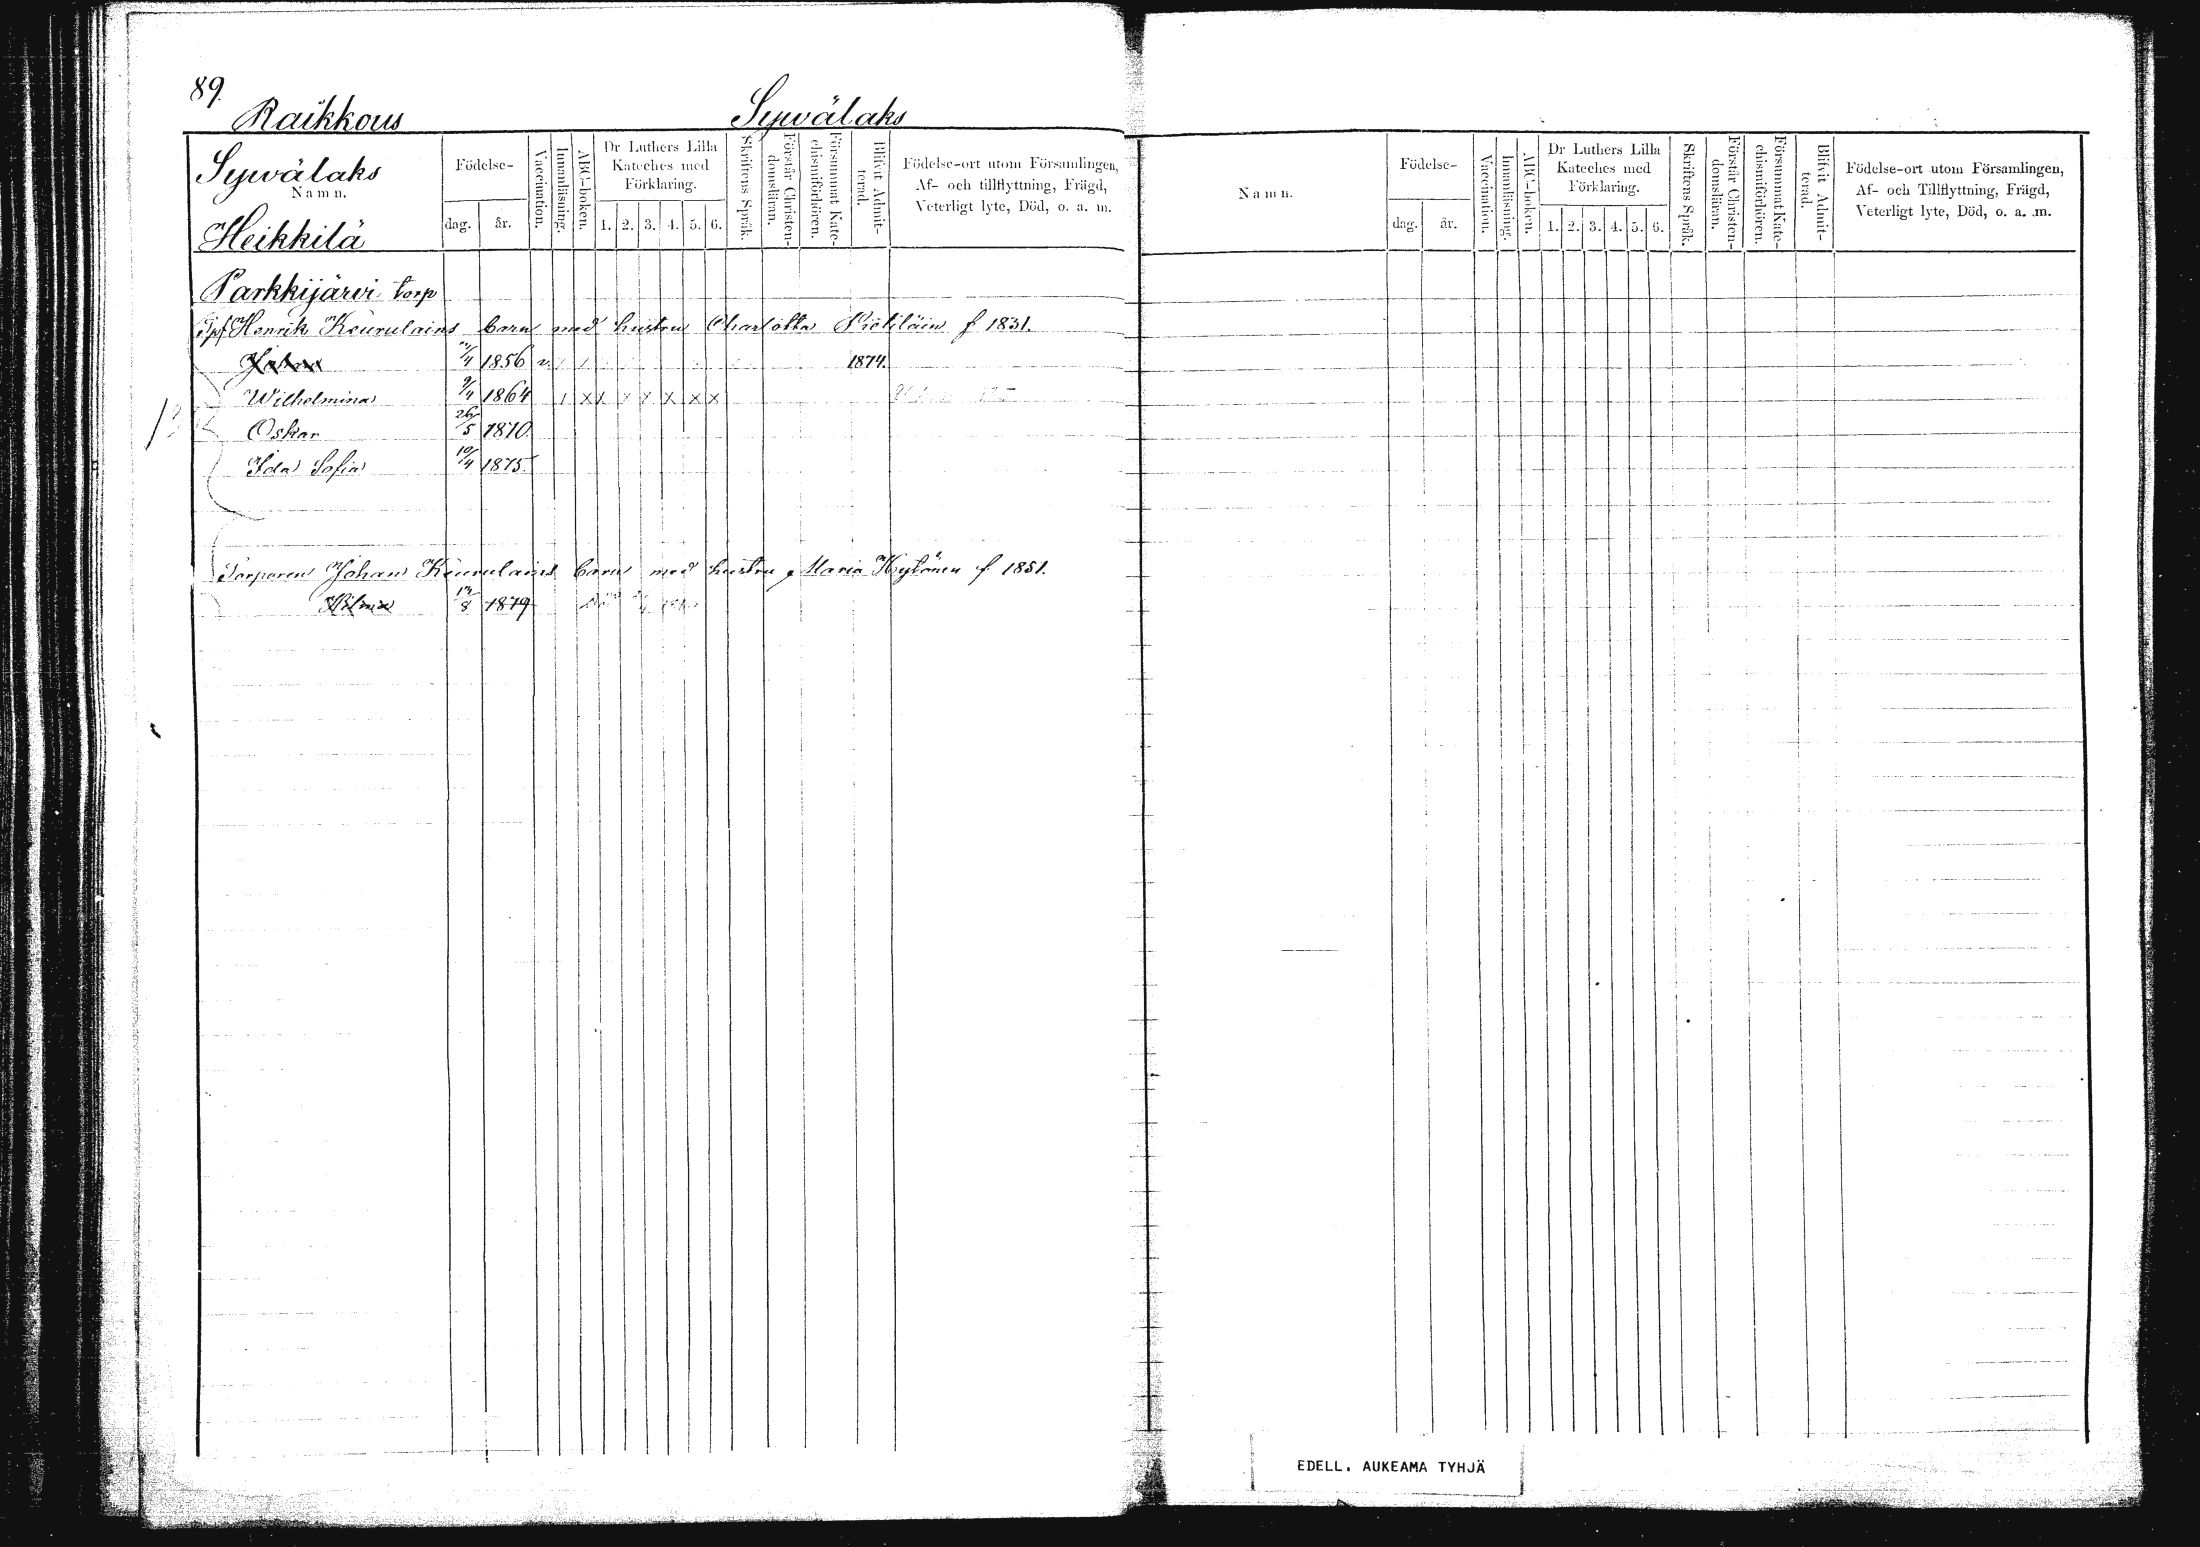 89.
Raikkous Sywälaks
Sywälaks
Namn.
Heikkilä
Födelse-
dag. år.
Vaccination.
Innanläsning.
ABC-boken.
Dr Luthers Lilla
Kateches med
Förklaring.
1. 2. 3. 4. 5. 6.
Skriftens Språk.
Förstår Christen-
domsläran.
Försummat Kate-
chismiförhören.
Blifvit Admit-
terad.
Födelse-ort utom Församlingen,
Af- och tillflyttning, Frägd,
Veterligt lyte, Död, o. a. m.
Parkkijärvi torp
Henrik Keurulains barn med hustru Charlotta f 1831.
Johan 1856 v. 1874.
Wilhelmina 9/4 1864 x x x x x x x
Oskar 26/5 1870
Ida Sofia 10/4 1875
Torparen Johan Keurulains barn med hustru Maria Kytönen f. 1851.
Hilma 1879
Namn.
Födelse-
dag. år.
Vaccination.
Innanläsning.
ABC-boken.
Dr Luthers Lilla
Kateches med
Förklaring.
1. 2. 3. 4. 5. 6.
Skriftens Språk.
Förstår Christen-
domsläran.
Försummat Kate-
chismiförhören.
Blifvit Admit-
terad.
Födelse-ort utom Församlingen,
Af- och Tillflyttning, Frägd,
Veterligt lyte, Död, o. a. m.
EDELL. AUKEAMA TYHJÄ